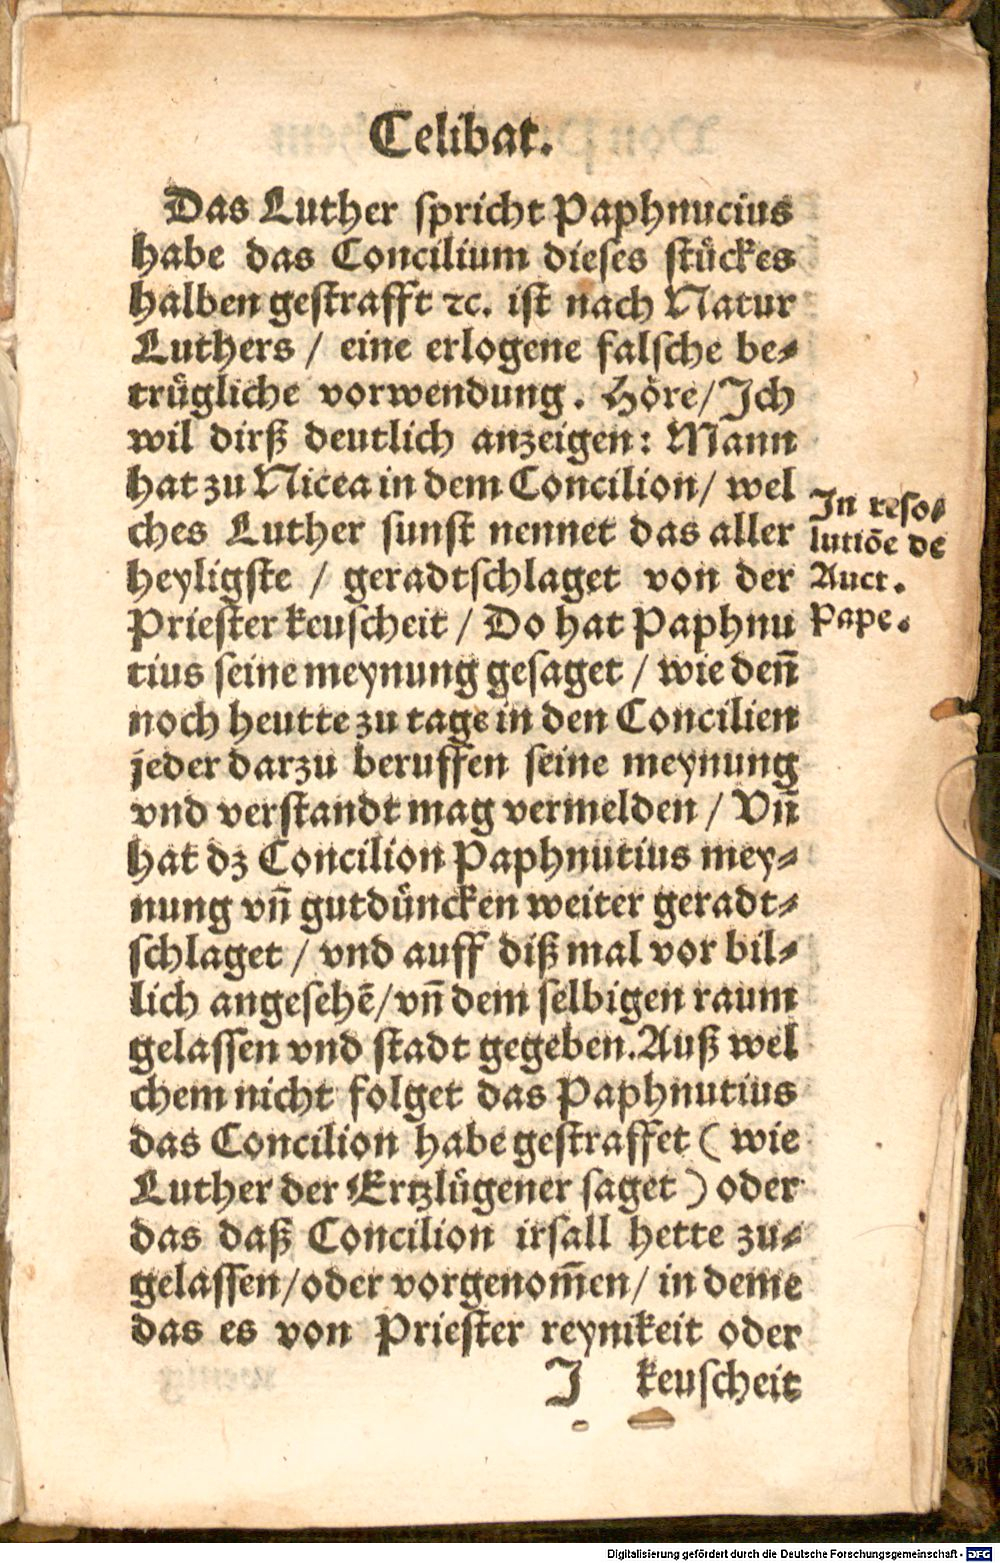 Celibat.
Das Luther spricht Paphnucius
habe das Concilium dieses stuͤckes
halben gestrafft ꝛc. ist nach Natur
Luthers / eine erlogene falsche be⸗
truͤgliche vorwendung. Hoͤre/ Ich
wil dirß deutlich anzeigen: Mann
hat zu Nicea in dem Concilion/ wel
ches Luther sunst nennet das aller
heyligste / geradtschlaget von der
Priester keuscheit / Do hat Paphnu
tius seine meynung gesaget / wie deñ
noch heutte zu tage in den Concilien
jeder darzu beruffen seine meynung
vnd verstandt mag vermelden / Vñ
hat dz Concilion Paphnutius mey⸗
nung vñ gutduͤncken weiter geradt⸗
schlaget / vnd auff diß mal vor bil⸗
lich angesehẽ/ vñ dem selbigen raum
gelassen vnd stadt gegeben. Auß wel
chem nicht folget das Paphnutius
das Concilion habe gestraffet ( wie
Luther der Ertzluͤgener saget ) oder
das daß Concilion irsall hette zu⸗
gelassen/ oder vorgenom̃en/ in deme
das es von Priester reynikeit oder
J keuscheit
In reso⸗
lutiõe de
Auct.
Pape.
Digitalisierung gefördert durch die Deutsche Forschungsgemeinschaft - DFG